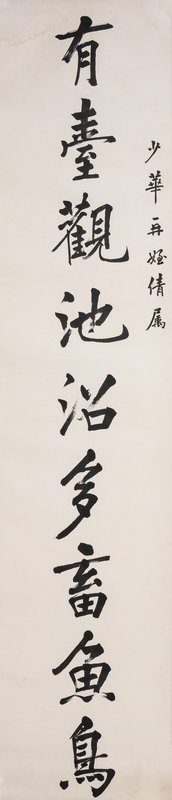 少華再姪倩属
有臺觀池沼多畜魚鳥